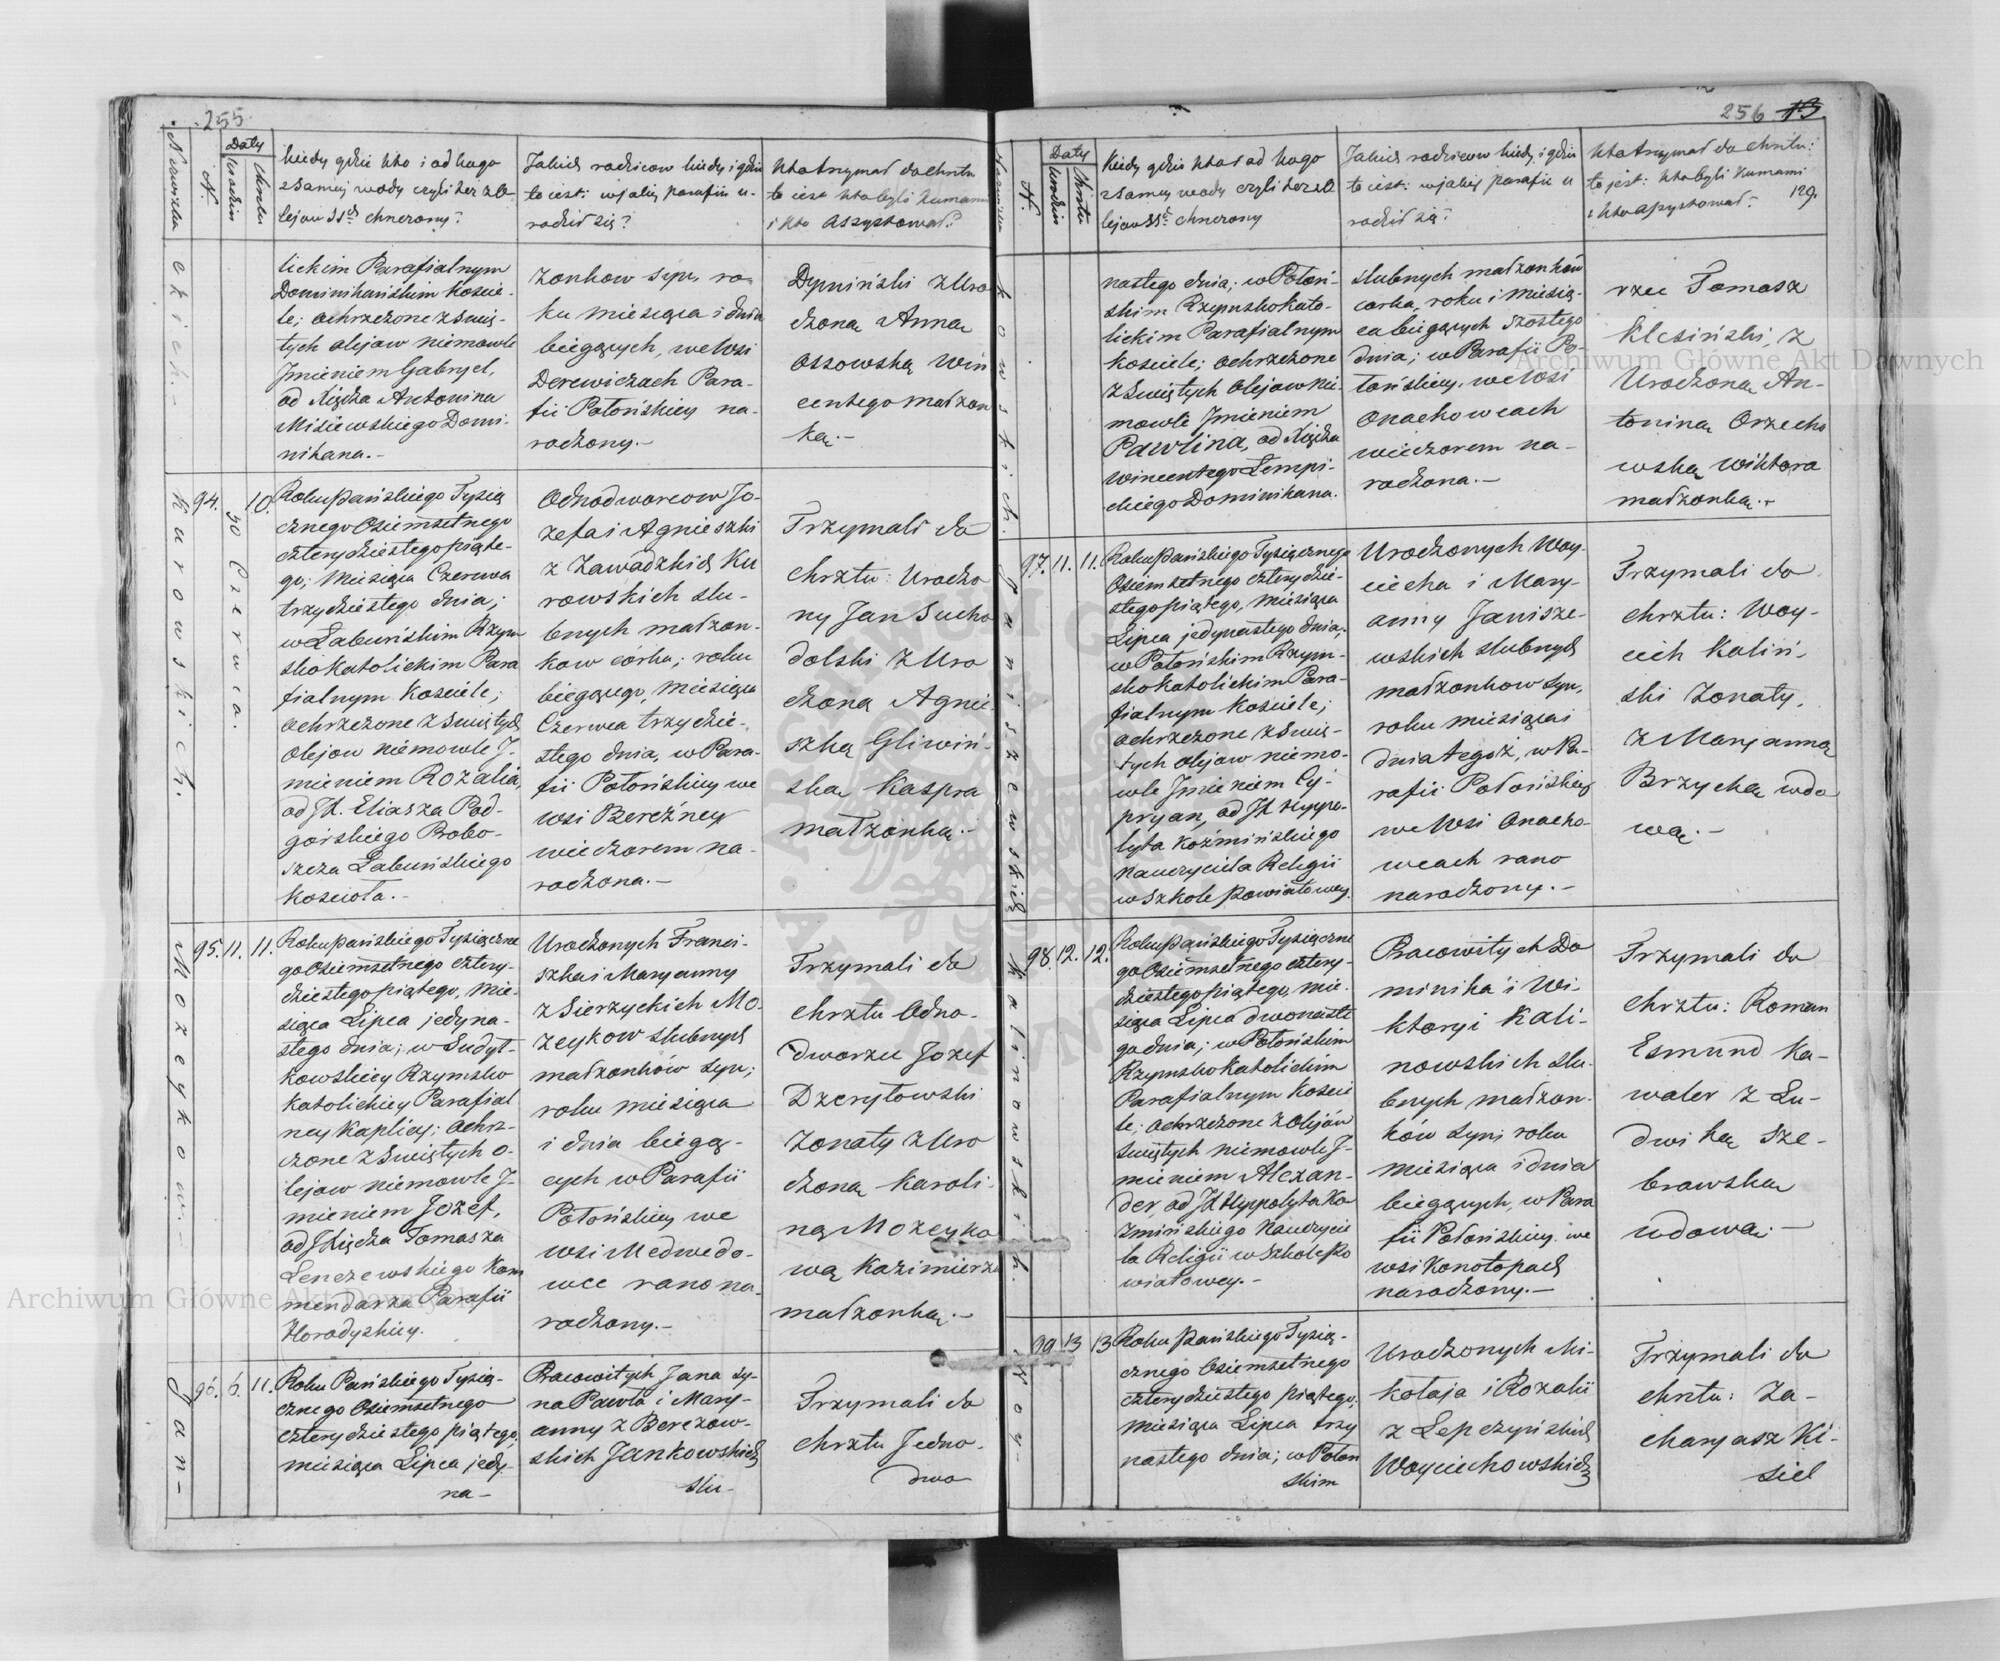 255
Nazwiska
N.
Daty
Urodzin
Chrztu
Kiedy gdzie kto i od kogo
z samey wody czyli też z O-
lejow SSch chrzczony?
Jakich rodzicow kiedy i gdzie
to iest: w jakiey parafii u-
rodził się?
Kto trzymał do chrztu
to iest kto byli kumami
i kto assystował?
ckich.-
lickim Parafialnym
Dominikańskim Koscie-
le; ochrzczone z Swię-
tych olejow niemowle
Jmieniem Gabryel,
od Xiędza Antonina
Misiewskiego Domi-
nikana.-
żonkow syn, ro-
ku miesiąca i dnia
biegących, we wsi
Derewiczach Para-
fii Połońskiey na-
rodzony.-
Dymiński z Uro
dzoną Anną
Ossowską Win
centego małżon
ką.-
Kurowskich.
94.
30 Czerwca.
10.
Roku Pańskiego Tysią
cznego Osiemsetnego
czterydziestego piąte-
go, Miesiąca Czerwca
trzydziestego dnia;
w Łabuńskim Rzym
skokatolickim Para
fialnym Kosciele;
ochrzczone z Swiętych
Olejow niemowle J-
mieniem Rozalia,
od JX. Eliasza Pod-
górskiego Probo-
szcza Łabuńskiego
Koscioła.-
Odnodworcow Jo-
zefa i Agnieszki
z Zawadzkich Ku
rowskich slu-
bnych małżon-
kow córka; roku
biegącego, Miesiąca
Czerwca trzydzie-
stego dnia, w Para-
fii Połońskiey we
wsi Bereźney
wieczorem na-
rodzona.-
Trzymali do
chrztu: Urodzo
ny Jan Sucho
dolski z Uro
dzoną Agnie
szką Gliwiń-
ską Kaspra
małżonką.-
Mozeykow.-
95.
11.
11.
Roku Pańskiego Tysiączne
go Osiemsetnego cztery-
dziestego piątego, Mie-
siąca Lipca jedyna-
stego dnia; w Sudył-
kowskiey Rzymsko
Katolickiey Parafial
ney Kaplicy; ochrz-
czone z Swiętych o-
lejow niemowle J-
mieniem Jozef,
od JXiędza Tomasza
Lenczewskiego Kom
mendarza Parafii
Horodyskiey.
Urodzonych Franci-
szka i Maryanny
z Sierzyckich Mo-
zeykow slubnych
małżonków syn;
roku miesiąca
i dnia biegą-
cych w Parafii
Połońskiey we
wsi Medwedo-
wce rano na-
rodzony.-
Trzymali do
chrztu Odno-
dworzec Jozef
Dzerytowski
żonaty z Uro
dzoną Karoli-
ną Mozeyko
wą Kazimierza
małżonką.-
Jan-
96.
6.
11.
Roku Pańskiego Tysią-
cznego Osiemsetnego
czterydziestego piątego,
miesiąca Lipca jedy-
na-
Pracowitych Jana sy-
na Pawła i Mary-
anny z Berezow-
skich Jankowskich
slu-
Trzymali do
chrztu Jedno-
dwo
256
13.
129.
Nazwiska
N.
Daty
Urodzin
Chrztu
Kiedy gdzie kto i od kogo
z samey wody czyli też z O
lejow SSch chrzczony
Jakich rodzicow kiedy i gdzie
to iest: w jakiey parafii u
rodził się?
Kto trzymał do chrztu:
to jest: kto byli kumami
i kto assystował?
kowskich.
nastego dnia; w Połoń-
skim Rzymsko Kato-
lickim Parafialnym
Kosciele; ochrzczone
z Swiętych Olejow nie-
mowle Jmieniem
Pawlina, od Xiędza
Wincentego Lempi-
ckiego Dominikana.
slubnych małżonków
corka, roku i miesią-
ca biegących szostego
dnia; w Parafii Po-
łońskiey, we wsi
Onackowcach
wieczorem na-
rodzona.-
rzec Tomasz
Klesiński, z
Urodzoną An-
toniną Orzecho
wską Wiktora
małżonką.-
Janiszewskich
97.
11.
11.
Roku Pańskiego Tysiącznego
Osiemsetnego czterydzie-
stego piątego, Miesiąca
Lipca jedynastego dnia;
w Połońskim Rzym-
skokatolickim Para-
fialnym Kosciele;
ochrzczone z Swię-
tych olejow niemo-
wle Jmieniem Cy-
pryan, od JX Hyppo-
lyta Koźmińskiego
Nauczyciela Religii
w Szkole Powiatowey.
Urodzonych Woy-
ciecha i Mary-
anny Janisze-
wskich slubnych
małżonkow syn,
roku miesiąca i
dnia tegoż, w Pa-
rafii Połońskiey
we wsi Onacko-
wcach rano
narodzony.-
Trzymali do
chrztu: Woy-
ciech Kaliń-
ski żonaty,
z Maryanną
Brzycką wdo
wą.-
Kalinowskich.
98.
12.
12.
Roku Pańskiego Tysiączne
go Osiemsetnego cztery-
dziestego piątego, mie-
siąca Lipca dwonaste
go dnia; w Połońskim
Rzymsko Katolickim
Parafialnym Koscie
le; ochrzczone z olejów
swiętych niemowle J-
mieniem Alexan-
der od JX Hyppolyta Ko
źmińskiego Nauczycie
la Religii w Szkole Po
wiatowey.-
Pracowitych Do
minika i Wi-
ktoryi Kali-
nowskich slu-
bnych małżon-
ków syn; roku
miesiąca i dnia
biegących, w Para
fii Połońskiey we
wsi Konotopach
narodzony.-
Trzymali do
chrztu: Roman
Esmund Ka-
waler z Lu-
dwiką Sze-
brawską
wdową.-
Woy-
99
13
13
Roku Pańskiego Tysią-
cznego Osiemsetnego
czterydziestego piątego,
miesiąca Lipca trzy
nastego dnia; w Połoń
skim
Urodzonych Mi-
kołaja i Rozalii
z Lepczyńskich
Woyciechowskich
Trzymali do
chrztu: Za-
charyasz Ki-
siel
Archiwum Główne Akt Dawnych
Archiwum Główne Akt Dawnych